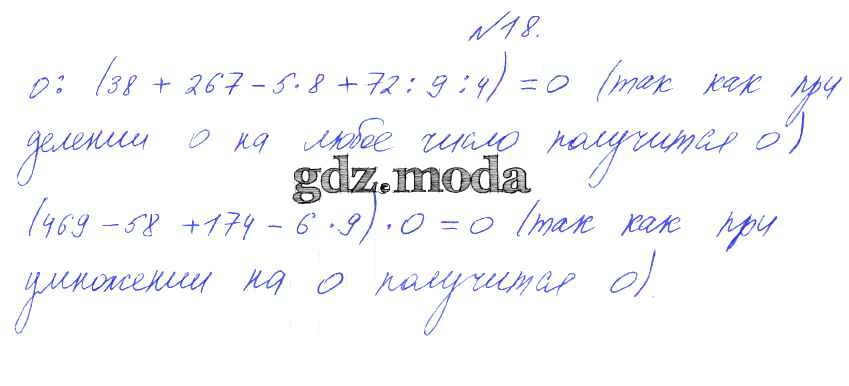 №18.
0: (38 + 267 - 5·8 + 72 : 9 : 4) = 0 (так как при
делении 0 на любое число получится 0)
gdz.moda
(469 - 58 + 174 - 6 · 9) · 0 = 0 (так как при
умножении на 0 получится 0).